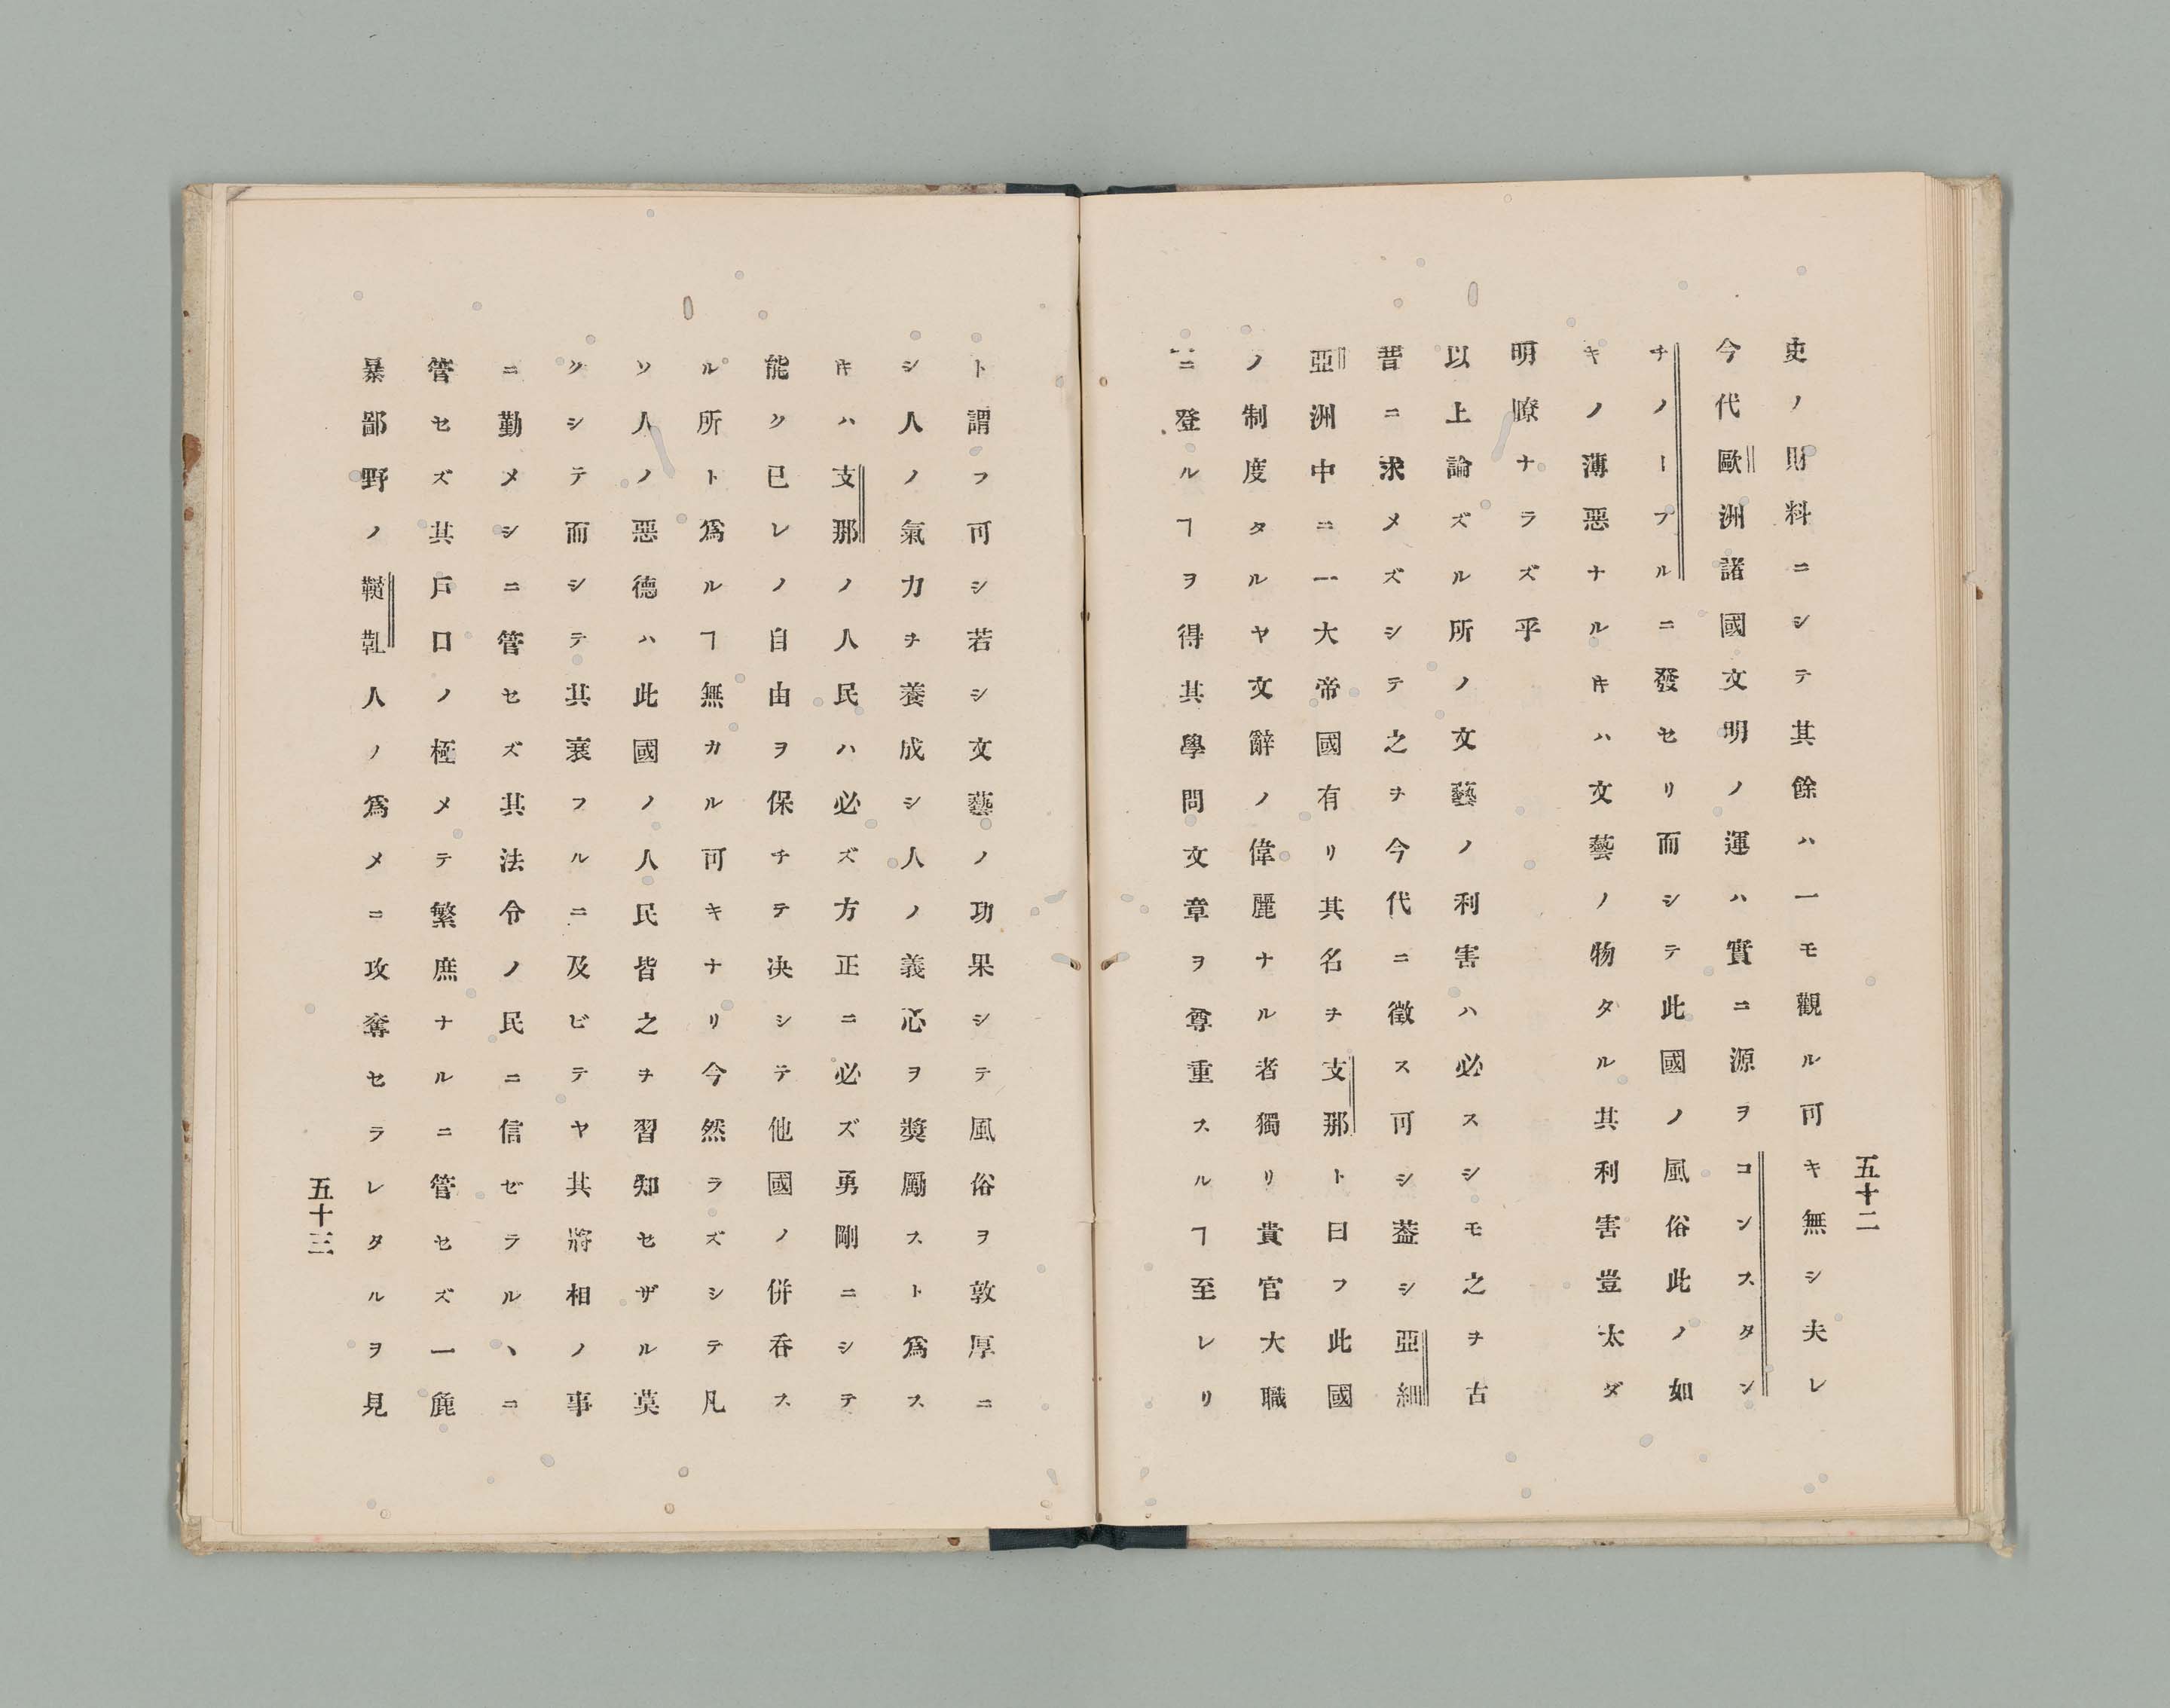 五十二
吏ノ財料ニシテ其餘ハ一モ觀ル可キ無シ夫レ
今代歐洲諸國文明ノ運ハ實ニ源ヲコンスタン
チノープルニ發セリ而シテ此國ノ風俗此ノ如
キノ薄惡ナルキハ文藝ノ物タル其利害豈太ダ
明瞭ナラズ乎
以上論ズル所ノ文藝ノ利害ハ必スシモ之ヲ古
昔ニ求メズシテ之ヲ今代ニ徵ス可シ葢シ亞細
亞洲中ニ一大帝國有リ其名ヲ支那ト曰フ此國
ノ制度タルヤ文辭ノ偉麗ナル者獨リ貴官大職
ニ登ルヿヲ得其學問文章ヲ尊重スルヿ至レリ
ト謂フ可シ若シ文藝ノ功果シテ風俗ヲ敦厚ニ
シ人ノ氣力ヲ養成シ人ノ義心ヲ奬勵スト爲ス
キハ支那ノ人民ハ必ズ方正ニ必ズ勇剛ニシテ
能ク已レノ自由ヲ保チテ决シテ他國ノ併呑ス
ル所ト爲ルヿ無カル可キナリ今然ラズシテ凡
ソ人ノ惡德ハ此國ノ人民皆之ヲ習知セザル莫
クシテ而シテ其衰フルニ及ビテヤ其將相ノ事
ニ勤メシニ管セズ其法令ノ民ニ信ゼラルヽニ
管セズ其戶口ノ極メテ繁庶ナルニ管セズ一麁
暴鄙野ノ韃靼人ノ爲メニ攻奪セラレタルヲ見
五十三